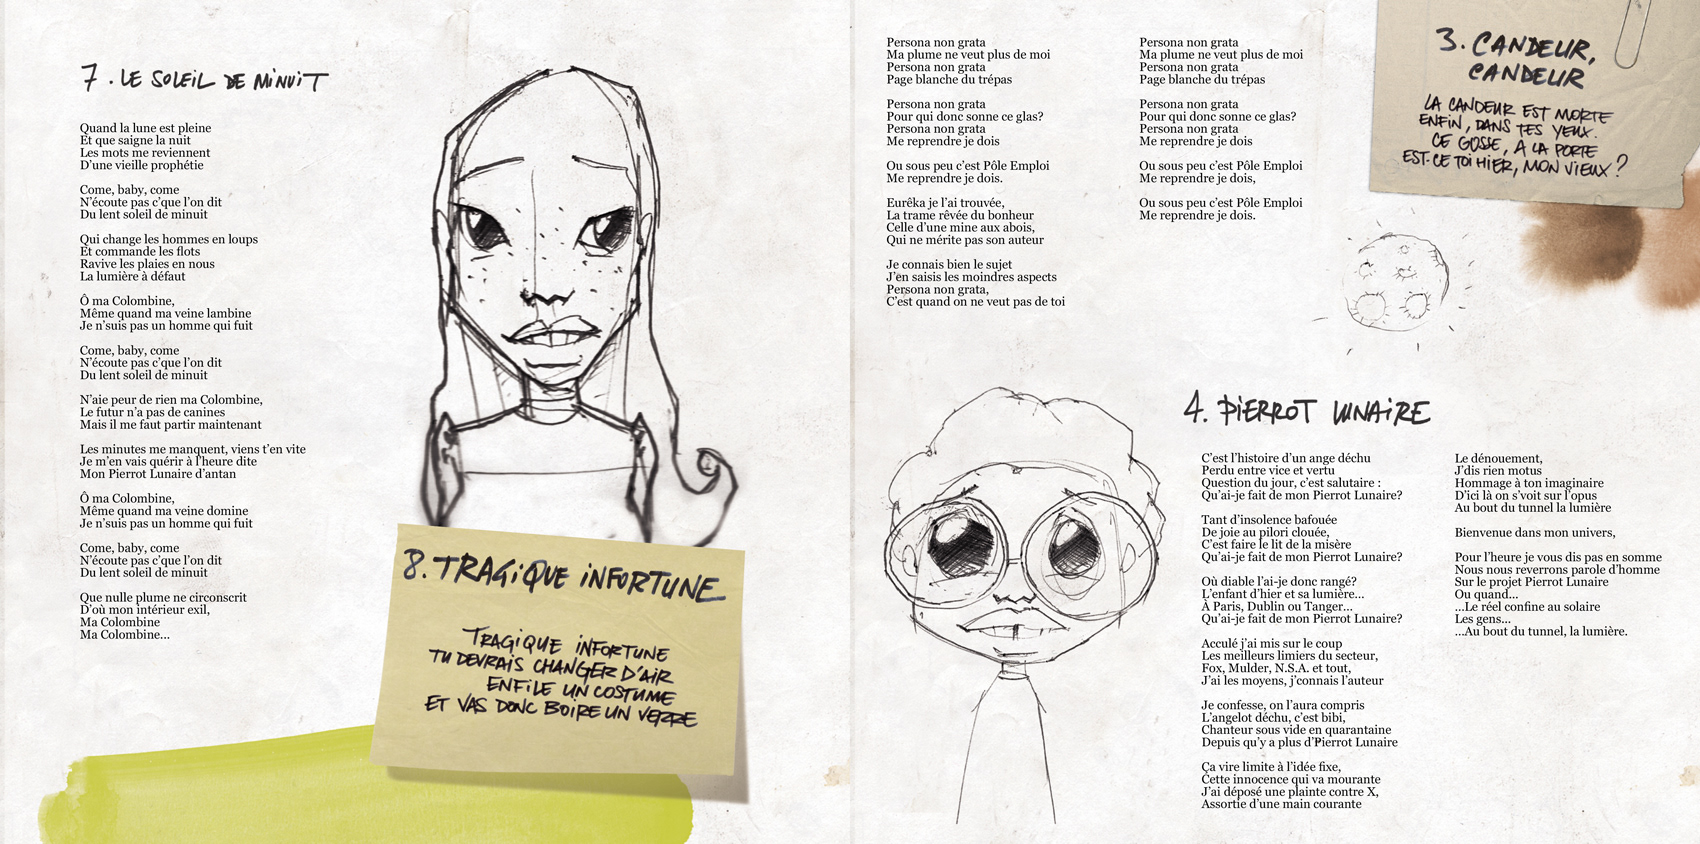 7. LE SOLEIL DE MINUIT
Quand la lune est pleine
Et que saigne la nuit
Les mots me reviennent
D'une vieille prophétie
Come, baby, come
N'écoute pas c'que l'on dit
Du lent soleil de minuit
Qui change les hommes en loups
Et commande les flots
Ravive les plaies en nous
La lumière à défaut
Ô ma Colombine,
Même quand ma veine lambine
Je n'suis pas un homme qui fuit
Come, baby, come
N'écoute pas c'que l'on dit
Du lent soleil de minuit
N'aie peur de rien ma Colombine,
Le futur n'a pas de canines
Mais il me faut partir maintenant
Les minutes me manquent, viens t'en vite
Je m'en vais quérir à l'heure dite
Mon Pierrot Lunaire d'antan
Ô ma Colombine,
Même quand ma veine domine
Je n'suis pas un homme qui fuit
Come, baby, come
N'écoute pas c'que l'on dit
Du lent soleil de minuit
Que nulle plume ne circonscrit
D'où mon intérieur exil,
Ma Colombine
Ma Colombine...
8. TRAGIQUE INFORTUNE
TRAGIQUE INFORTUNE
TU DEVRAIS CHANGER D'AIR
ENFILE UN COSTUME
ET VAS DONC BOIRE UN VERRE
Persona non grata
Ma plume ne veut plus de moi
Persona non grata
Page blanche du trépas
Persona non grata
Pour qui donc sonne ce glas?
Persona non grata
Me reprendre je dois
Ou sous peu c'est Pôle Emploi
Me reprendre je dois.
Eurêka je l'ai trouvée,
La trame rêvée du bonheur
Celle d'une mine aux abois,
Qui ne mérite pas son auteur
Je connais bien le sujet
J'en saisis les moindres aspects
Persona non grata,
C'est quand on ne veut pas de toi
Persona non grata
Ma plume ne veut plus de moi
Persona non grata
Page blanche du trépas
Persona non grata
Pour qui donc sonne ce glas?
Persona non grata
Me reprendre je dois
Ou sous peu c'est Pôle Emploi
Me reprendre je dois,
Ou sous peu c'est Pôle Emploi
Me reprendre je dois.
3. CANDEUR,
CANDEUR
LA CANDEUR EST MORTE
ENFIN, DANS TES YEUX.
CE GOSSE, A LA PORTE
EST-CE TOI HIER, MON VIEUX?
4. PIERROT LUNAIRE
C'est l'histoire d'un ange déchu
Perdu entre vice et vertu
Question du jour, c'est salutaire :
Qu'ai-je fait de mon Pierrot Lunaire?
Tant d'insolence bafouée
De joie au pilori clouée,
C'est faire le lit de la misère
Qu'ai-je fait de mon Pierrot Lunaire?
Où diable l'ai-je donc rangé?
L'enfant d'hier et sa lumière...
À Paris, Dublin ou Tanger...
Qu'ai-je fait de mon Pierrot Lunaire?
Acculé j'ai mis sur le coup
Les meilleurs limiers du secteur,
Fox, Mulder, N.S.A. et tout,
J'ai les moyens, j'connais l'auteur
Je confesse, on l'aura compris
L'angelot déchu, c'est bibi,
Chanteur sous vide en quarantaine
Depuis qu'y a plus d'Pierrot Lunaire
Ça vire limite à l'idée fixe,
Cette innocence qui va mourante
J'ai déposé une plainte contre X,
Assortie d'une main courante
Le dénouement,
J'dis rien motus
Hommage à ton imaginaire
D'ici là on s'voit sur l'opus
Au bout du tunnel la lumière
Bienvenue dans mon univers,
Pour l'heure je vous dis pas en somme
Nous nous reverrons parole d'homme
Sur le projet Pierrot Lunaire
Ou quand...
...Le réel confine au solaire
Les gens...
...Au bout du tunnel, la lumière.